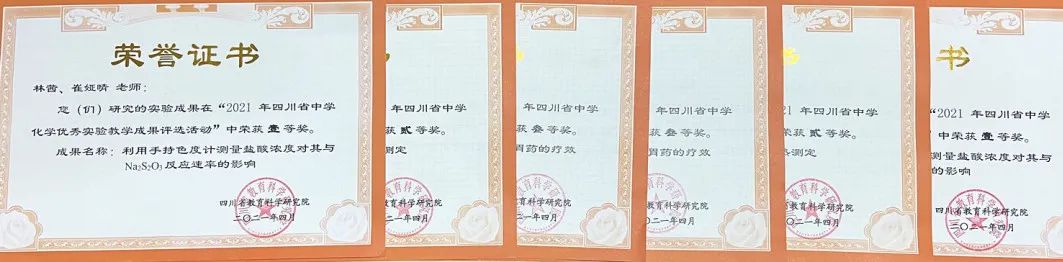 荣誉证书
林茜、崔娅晴 老师：
您（们）研究的实验成果在“2021 年四川省中学
化学优秀实验教学成果评选活动”中荣获 壹 等奖。
成果名称：利用手持色度计测量盐酸浓度对其与
Na₂S₂O₃反应速率的影响
四川省教育科学研究院
二〇二一年四月
年四川省中学
获 贰 等奖。
测定
教育科学研究院
一年四月
年四川省中学
获 叁 等奖。
胃药的疗效
教育科学研究院
一年四月
年四川省中学
获 叁 等奖。
胃药的疗效
教育科学研究院
一年四月
年四川省中学
荣获 贰 等奖。
测定
省教育科学研究院
二〇二一年四月
书
“2021 年四川省中学
中荣获 壹 等奖。
测量盐酸浓度对其与
的影响
四川省教育科学研究院
二〇二一年四月